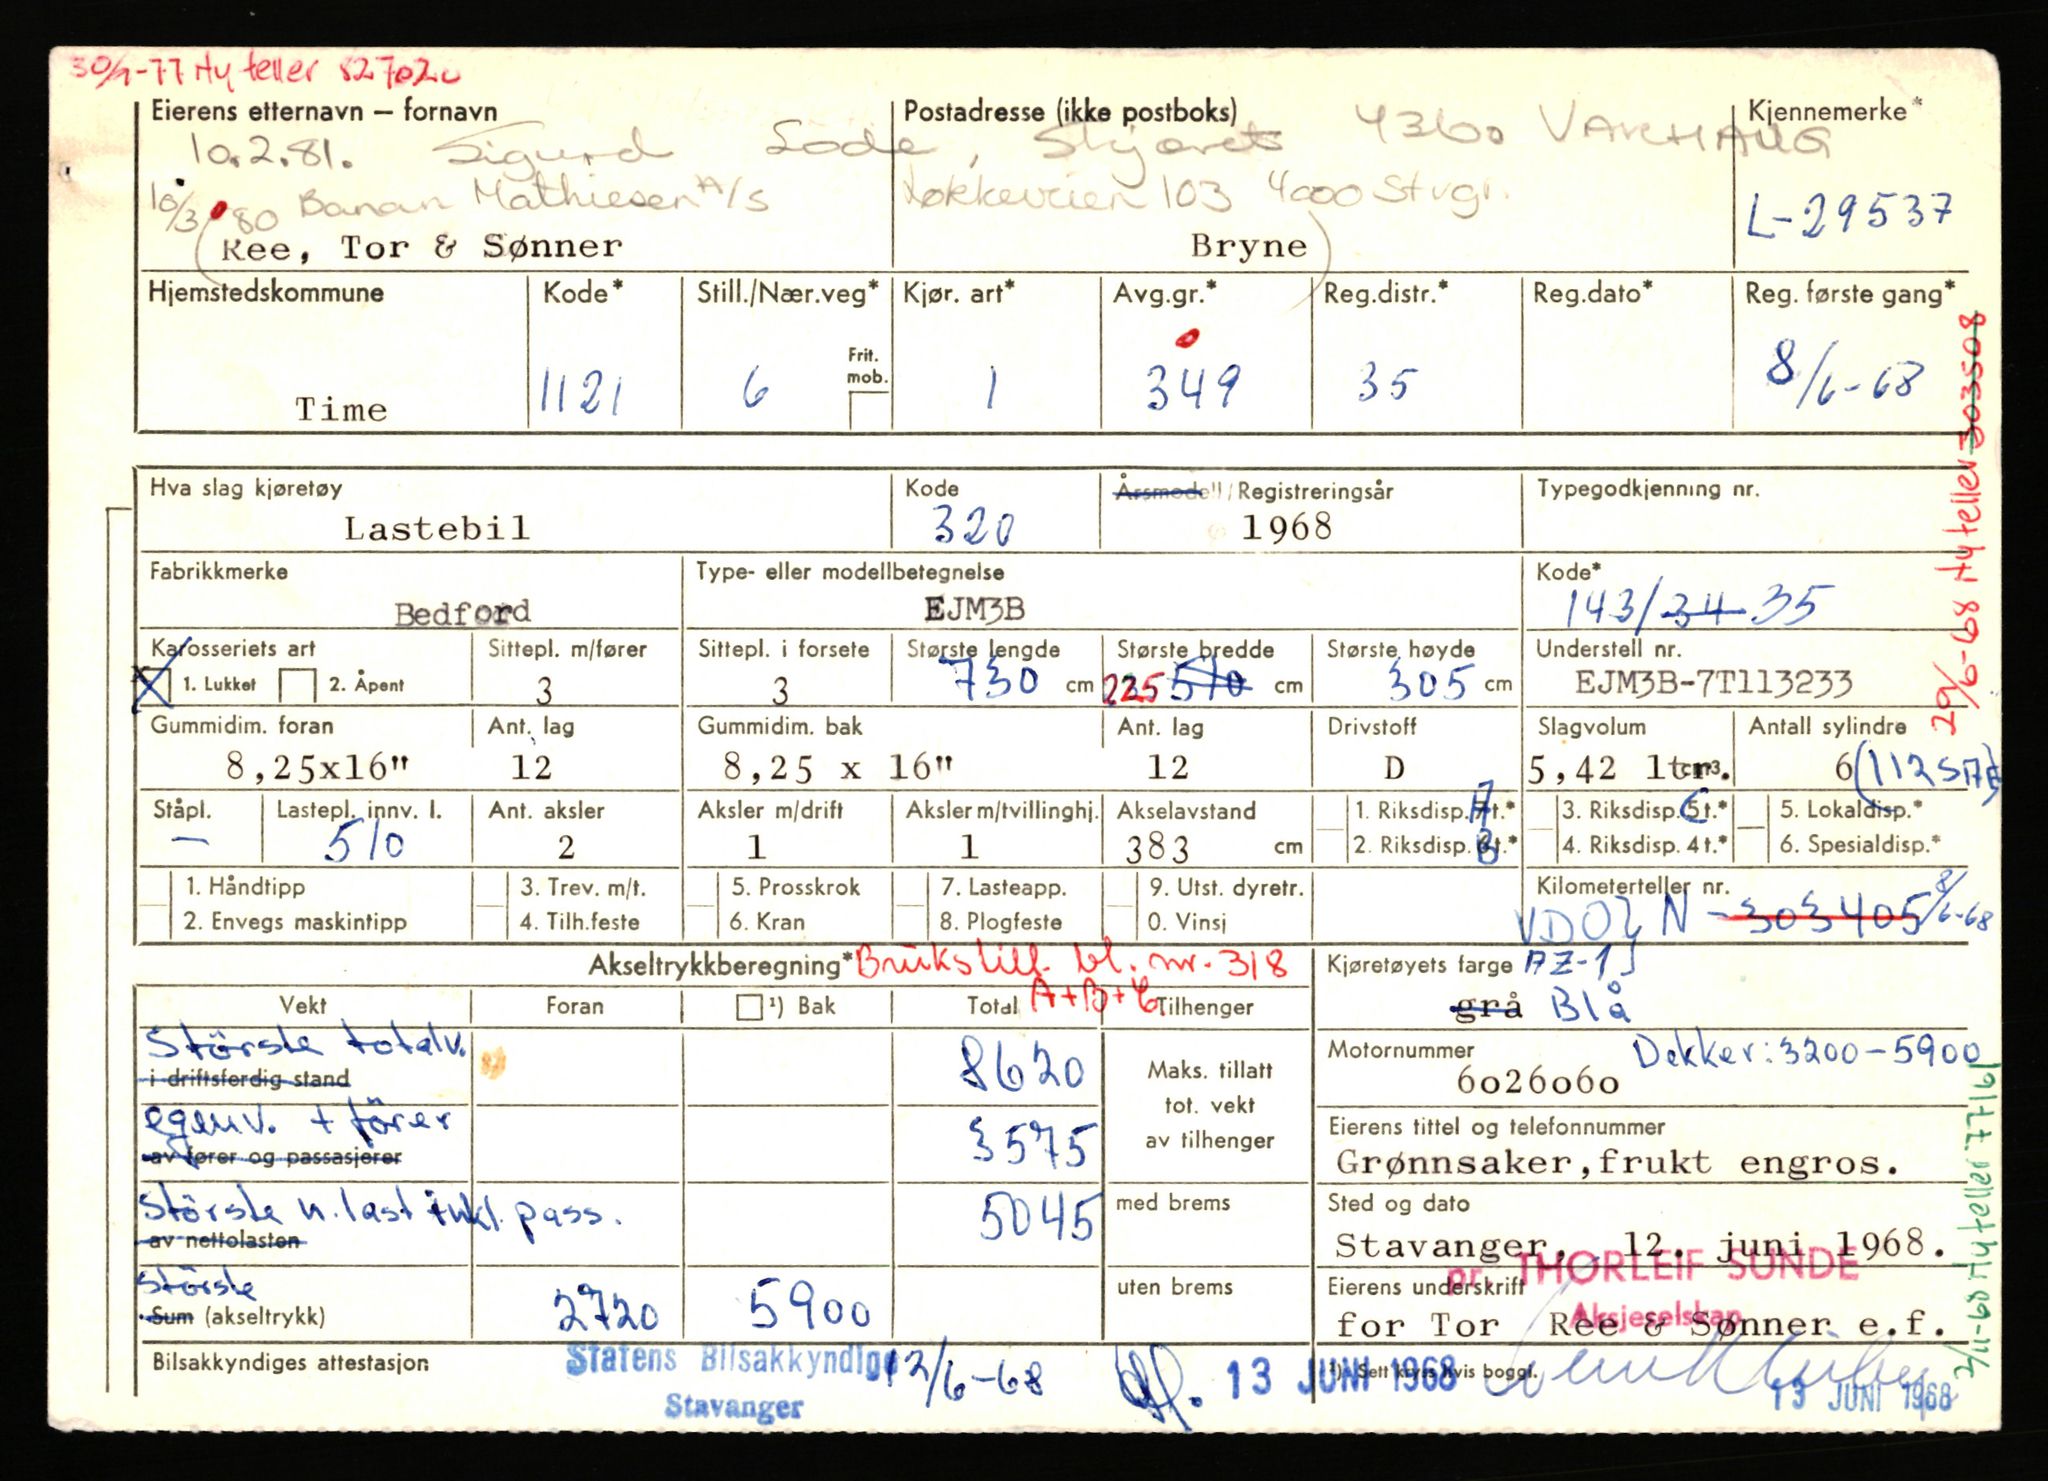 30/1-77 Ny teller 827020
Eierens etternavn — fornavn
Postadresse (ikke postboks)
Kjennemerke*
10.2.81. Sigurd 4360 VARHAUG
10/3 80 Banan Mathiesen A/S Løkkeveien 103 4000 Stvgr.
L-29537
Ree, Tor & Sønner Bryne
Hjemstedskommune Kode* Still./Nær.veg* Kjør. art* Avg.gr.* Reg.distr.* Reg.dato* Reg. første gang*
Frit. mob.
Time 1121 6 1 349 35 8/6-68
29/6-68 Ny teller 303508
Hva slag kjøretøy Kode Årsmodell/Registreringsår Typegodkjenning nr.
Lastebil 320 1968
Fabrikkmerke Type- eller modellbetegnelse Kode*
Bedford EJM3B 143/34 35
Karosseriets art Sittepl. m/fører Sittepl. i forsete Største lengde Største bredde Største høyde Understell nr.
X 1. Lukket 2. Åpent 3 3 730 cm 225 510 cm 305 cm EJM3B-7T113233
Gummidim. foran Ant. lag Gummidim. bak Ant. lag Drivstoff Slagvolum Antall sylindre
8,25x16" 12 8,25 x 16" 12 D 5,42 ltr. cm³ 6 (112 SAE)
Ståpl. Lastepl. innv. l. Ant. aksler Aksler m/drift Aksler m/tvillinghj. Akselavstand 1. Riksdisp. 7t.* A 3. Riksdisp. 5t.* C 5. Lokaldisp.*
— 510 2 1 1 383 cm 2. Riksdisp. 6t.* B 4. Riksdisp. 4t.* 6. Spesialdisp.*
1. Håndtipp 3. Trev. m/t. 5. Prosskrok 7. Lasteapp. 9. Utst. dyretr. Kilometerteller nr.
2. Envegs maskintipp 4. Tilh.feste 6. Kran 8. Plogfeste 0. Vinsj
VDO N - 303405 8/6-68
Akseltrykkberegning* Brukstill. bl. nr. 318 Kjøretøyets farge AZ-1
A+B+C
Vekt Foran ¹) Bak Total Tilhenger grå Blå
Största totalv. 8620
i driftsferdig stand
Maks. tillatt tot. vekt av tilhenger
Motornummer Dekker: 3200-5900
6026060
egenv. + förer 3575
av fører og passasjerer
Eierens tittel og telefonnummer
Grønnsaker, frukt engros.
Största n. last inkl. pass. 5045
av nettolasten
med brems
Sted og dato
Stavanger, 12. juni 1968.
Största 2720 5900
Sum (akseltrykk)
uten brems
Eierens underskrift
pr. THORLEIF SUNDE
Aksjeselskap
for Tor Ree & Sønner e.f.
2/11-68 Ny teller 77161
Bilsakkyndiges attestasjon
Statens Bilsakkyndige
Stavanger
12/6-68
13 JUNI 1968
¹) Sett kryss hvis boggi.
13 JUNI 1968